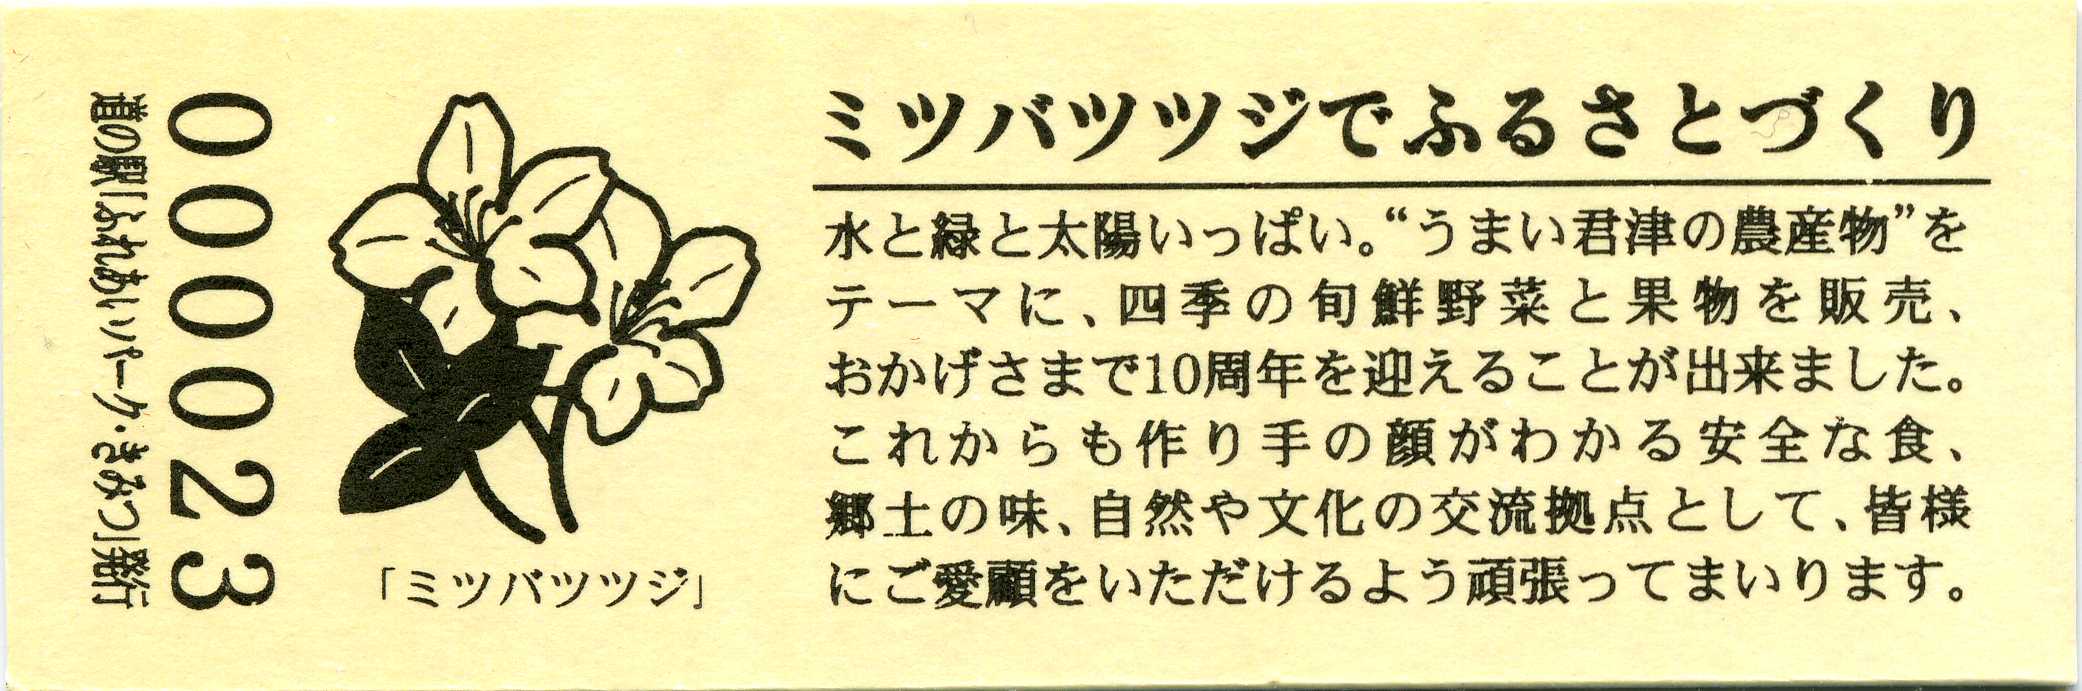 ミツバツツジでふるさとづくり
水と緑と太陽いっぱい。“うまい君津の農産物”を
テーマに、四季の旬鮮野菜と果物を販売、
おかげさまで10周年を迎えることが出来ました。
これからも作り手の顔がわかる安全な食、
郷土の味、自然や文化の交流拠点として、皆様
にご愛顧をいただけるよう頑張ってまいります。
「ミツバツツジ」
000023
道の駅「ふれあいパーク・きみつ」発行